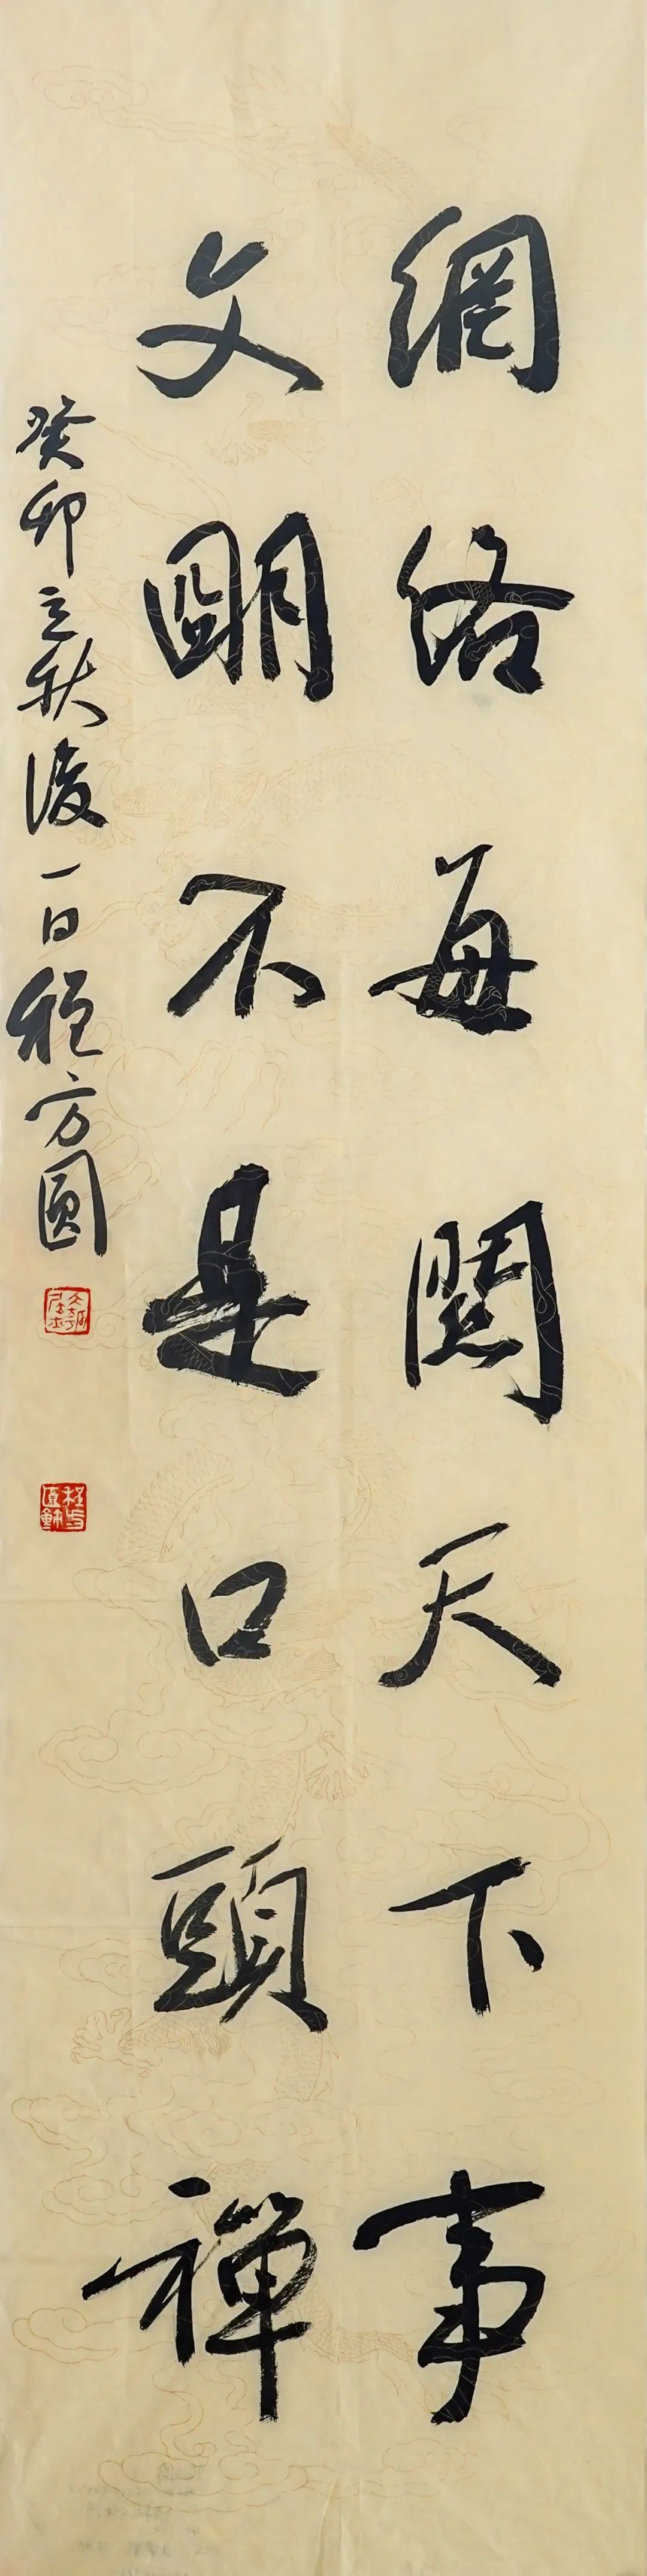 網络每関天下事
文朙不是口頭禪
癸卯立秋後一日程方圓